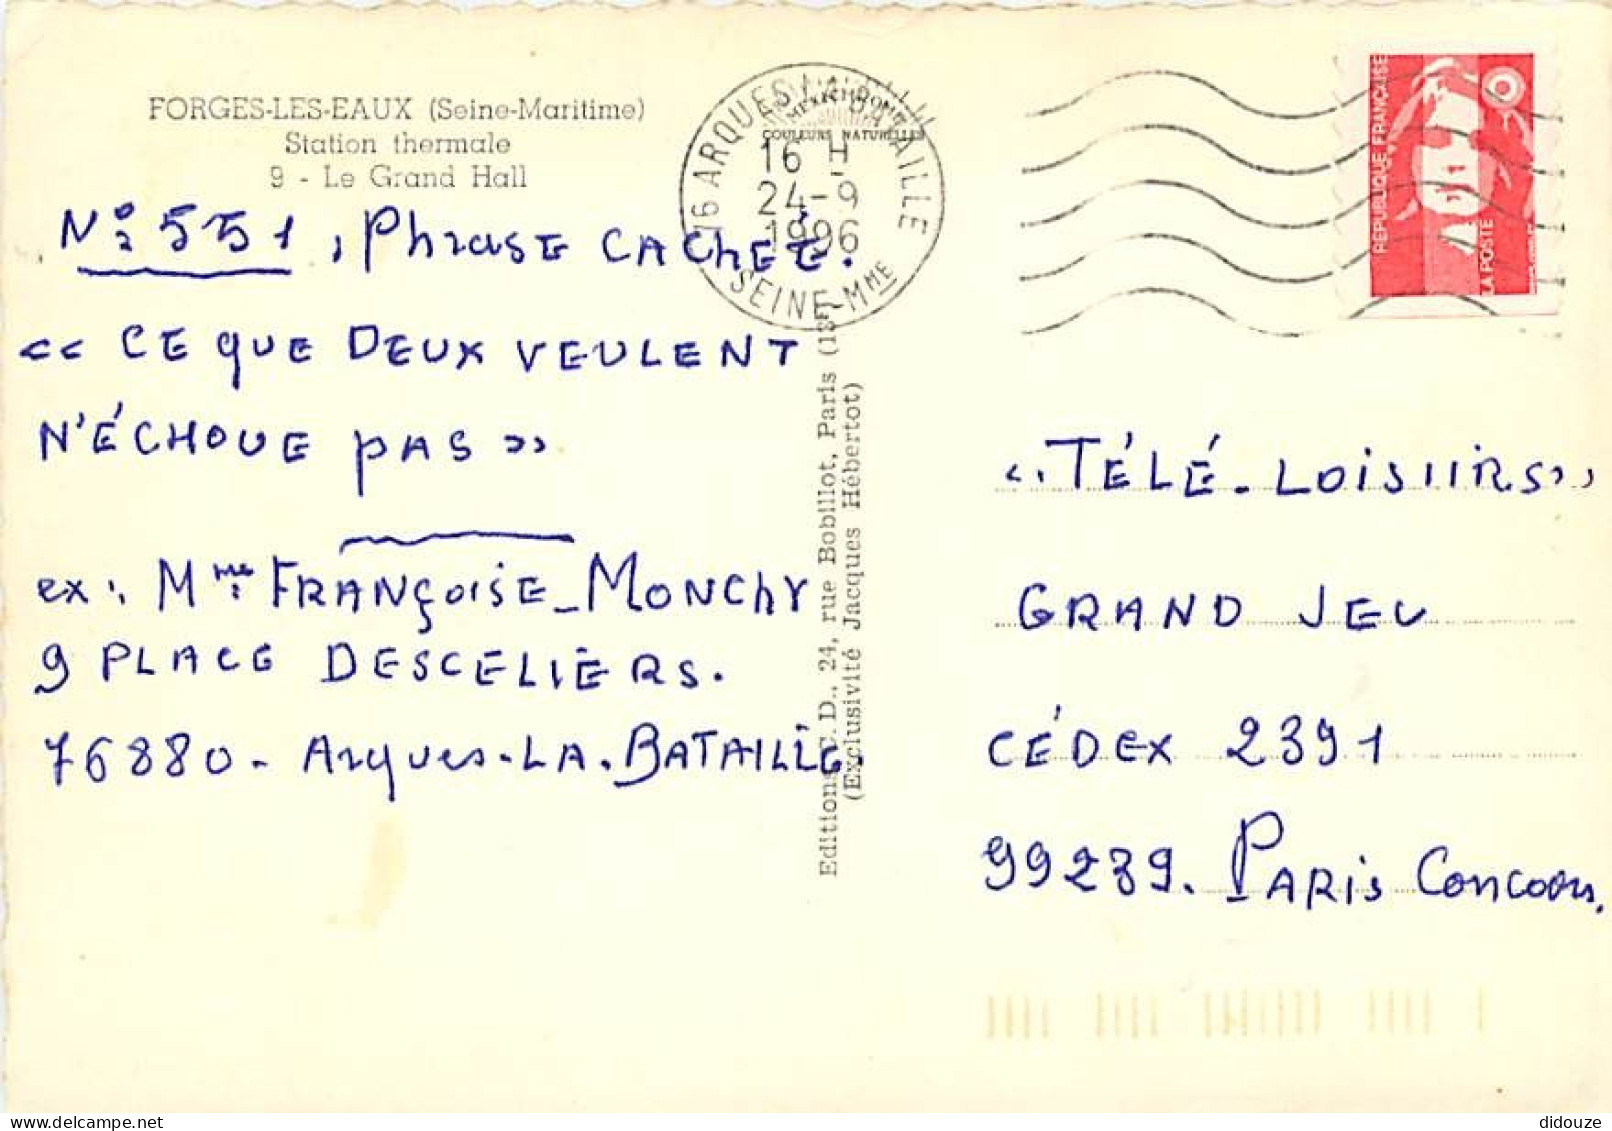 FORGES-LES-EAUX (Seine-Maritime)
Station thermale
9 - Le Grand Hall
N° 551, Phrase CACHÉE.
<< CE QUE DEUX VEULENT
N'ÉCHOUE PAS >>
ex: Mme FRANÇOISE - MONCHY
9 PLACE DESCELIERS.
76880 - Arques-LA-BATAILLE.
MEXICHROME
COULEURS NATURELLES
76 ARQUES LA BATAILLE
16 H
24-9
1996
SEINE-MME
Editions C.D., 24, rue Bobillot, Paris
(Exclusivité Jacques Hébertot)
RÉPUBLIQUE FRANÇAISE
LA POSTE
« TÉLÉ-LOISIIRS »
GRAND JEU
CÉDEX 2391
99239. PARIS Concours.
didouze